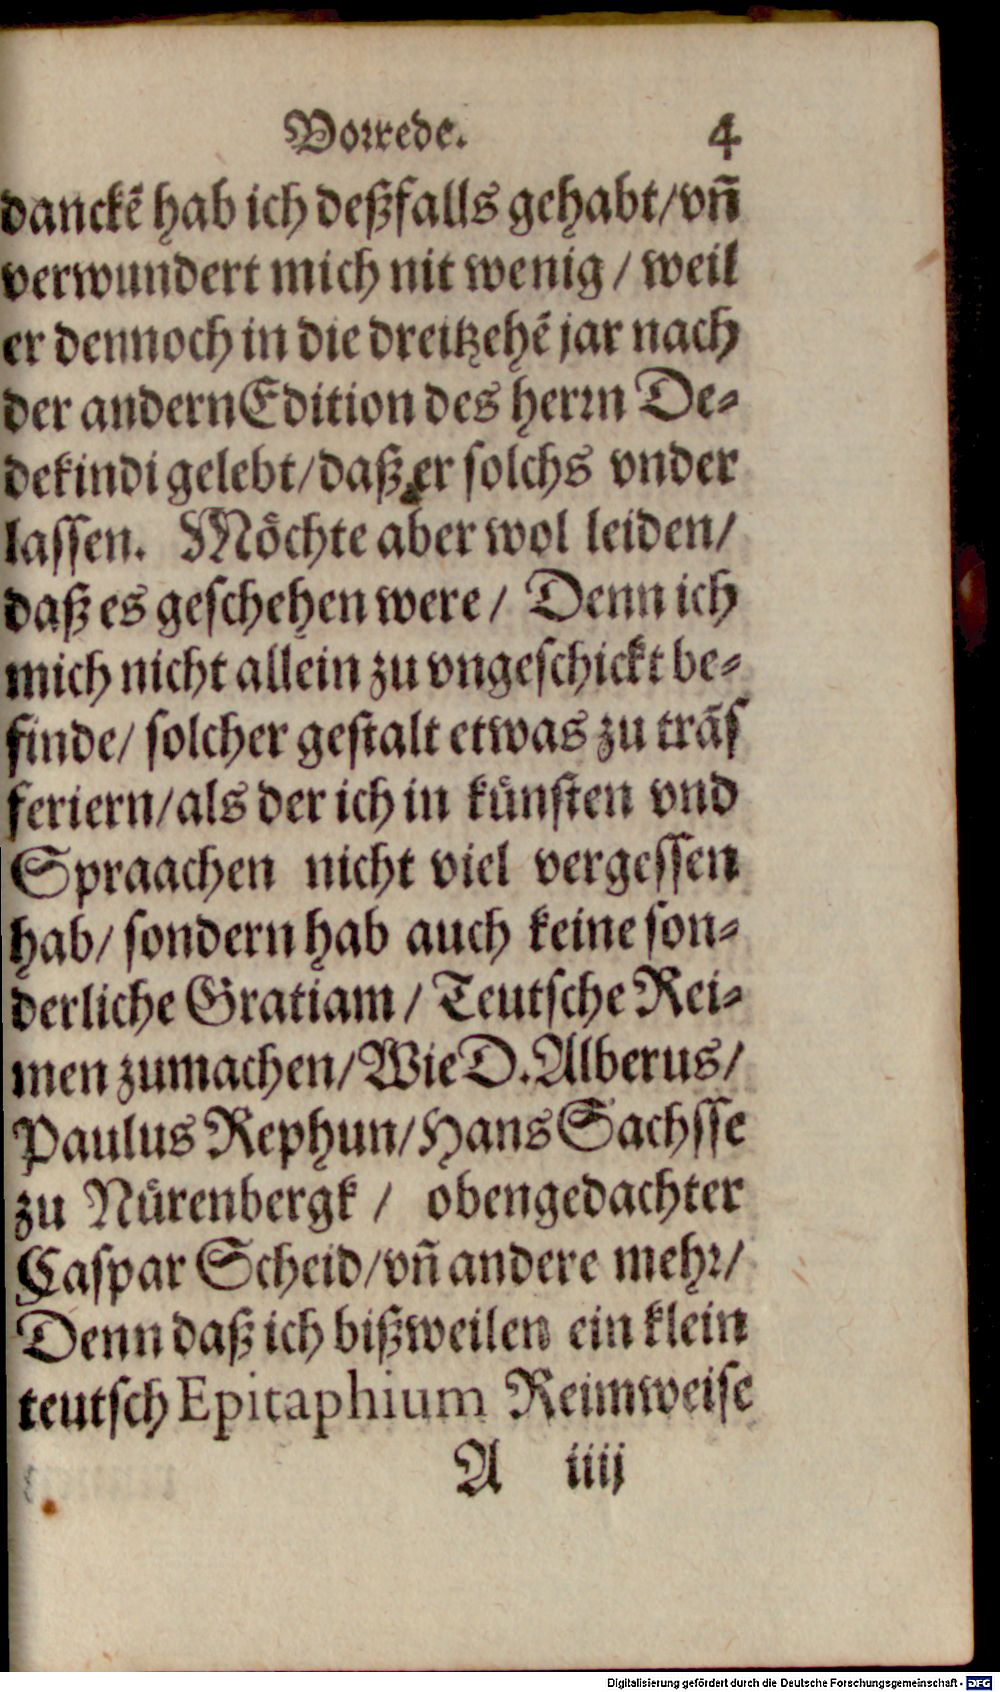 Vorrede. 4
danckẽ hab ich deßfalls gehabt/vñ
verwundert mich nit wenig / weil
er dennoch in die dreitzehẽ jar nach
der andern Edition des herrn De-
dekindi gelebt/daß er solchs vnder
lassen. Möchte aber wol leiden/
daß es geschehen were / Denn ich
mich nicht allein zu vngeschickt be-
finde/ solcher gestalt etwas zu trãs
feriern/als der ich in künsten vnd
Spraachen nicht viel vergessen
hab/ sondern hab auch keine son-
derliche Gratiam / Teutsche Rei-
men zumachen/Wie D. Alberus/
Paulus Rephun/Hans Sachsse
zu Nürenbergk / obengedachter
Caspar Scheid/vñ andere mehr/
Denn daß ich bißweilen ein klein
teutsch Epitaphium Reimweise
A iiij
Digitalisierung gefördert durch die Deutsche Forschungsgemeinschaft - DFG